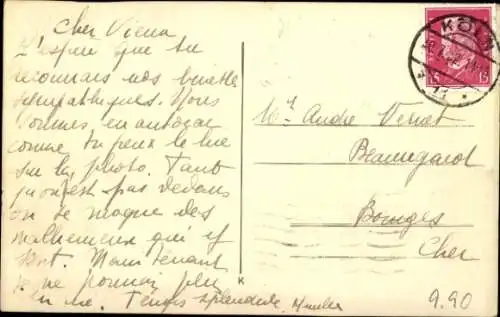 Cher Vieux
J'espère que tu
reconnais nos binettes
sympathiques. Nous
sommes en autocar
comme tu peux le voir
sur la photo. Tant
qu'on est pas dedans
on se moque des
malheureux qui y
sont. Maintenant
je ne pourrai plus
Temps splendide
KÖLN
15 15
Mr André Vernet
Beauregard
Bourges
Cher
K
9.90